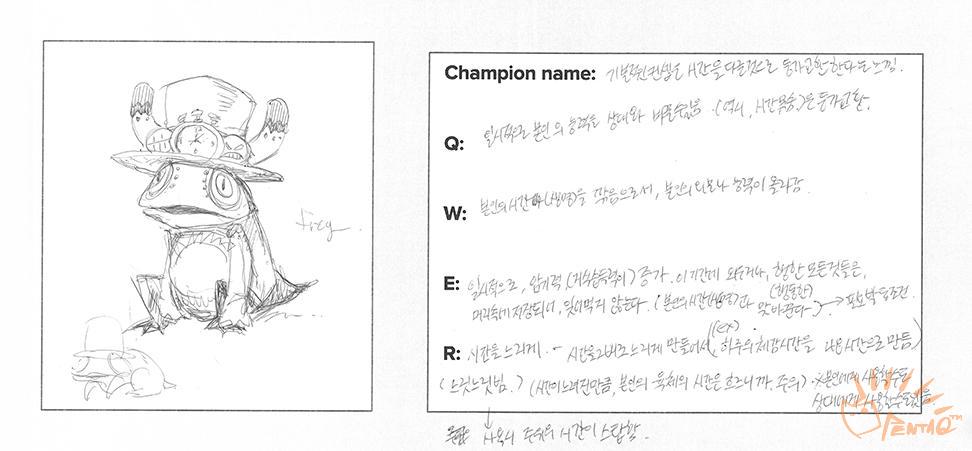 Champion name: 기본적인 컨셉은 시간을 다룰것으로 등가교환 한다 는 느낌.
Q: 일시적으로 본인의 능력을 상대와 바꿀수있음. (역시, 시간목숨)은 등가교환.
W: 본인의 시간 (생명)을 깎음으로서, 본인의 외모나 능력이 올라감.
E: 일시적으로, 암기력 (지식습득력이) 증가. 이 기간에 외우거나, 행한 모든것들은,
머릿속에 저장되어, 잊어먹지 않는다. (본인의 시간(생명)과 맞바꾼다)
(행동한)
R: 시간을 느리게. - 시간을 2배로 느리게 만들어서 (하루의 체감시간을 시간으로 만듬)
(ex)
(느릿느릿님.) (시간이 느려진만큼, 본인의 육체의 시간은 흐르니까, 주의) ※본인에게 사용할수도
상대에게 사용할수도있음.
사용시 주위의 시간이 스탑함.
frog
PENTAQ™